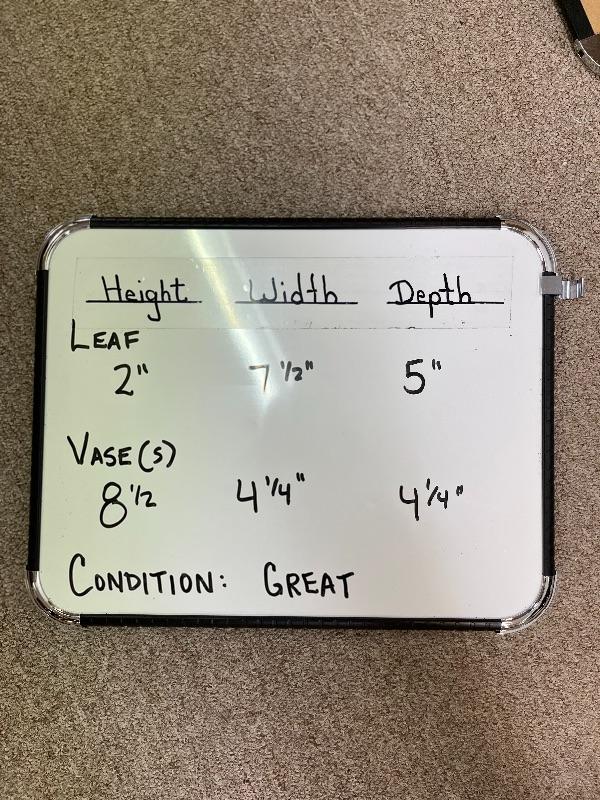 Height Width Depth
LEAF
2" 7 1/2" 5"
VASE(S)
8 1/2 4 1/4" 4 1/4"
CONDITION: GREAT